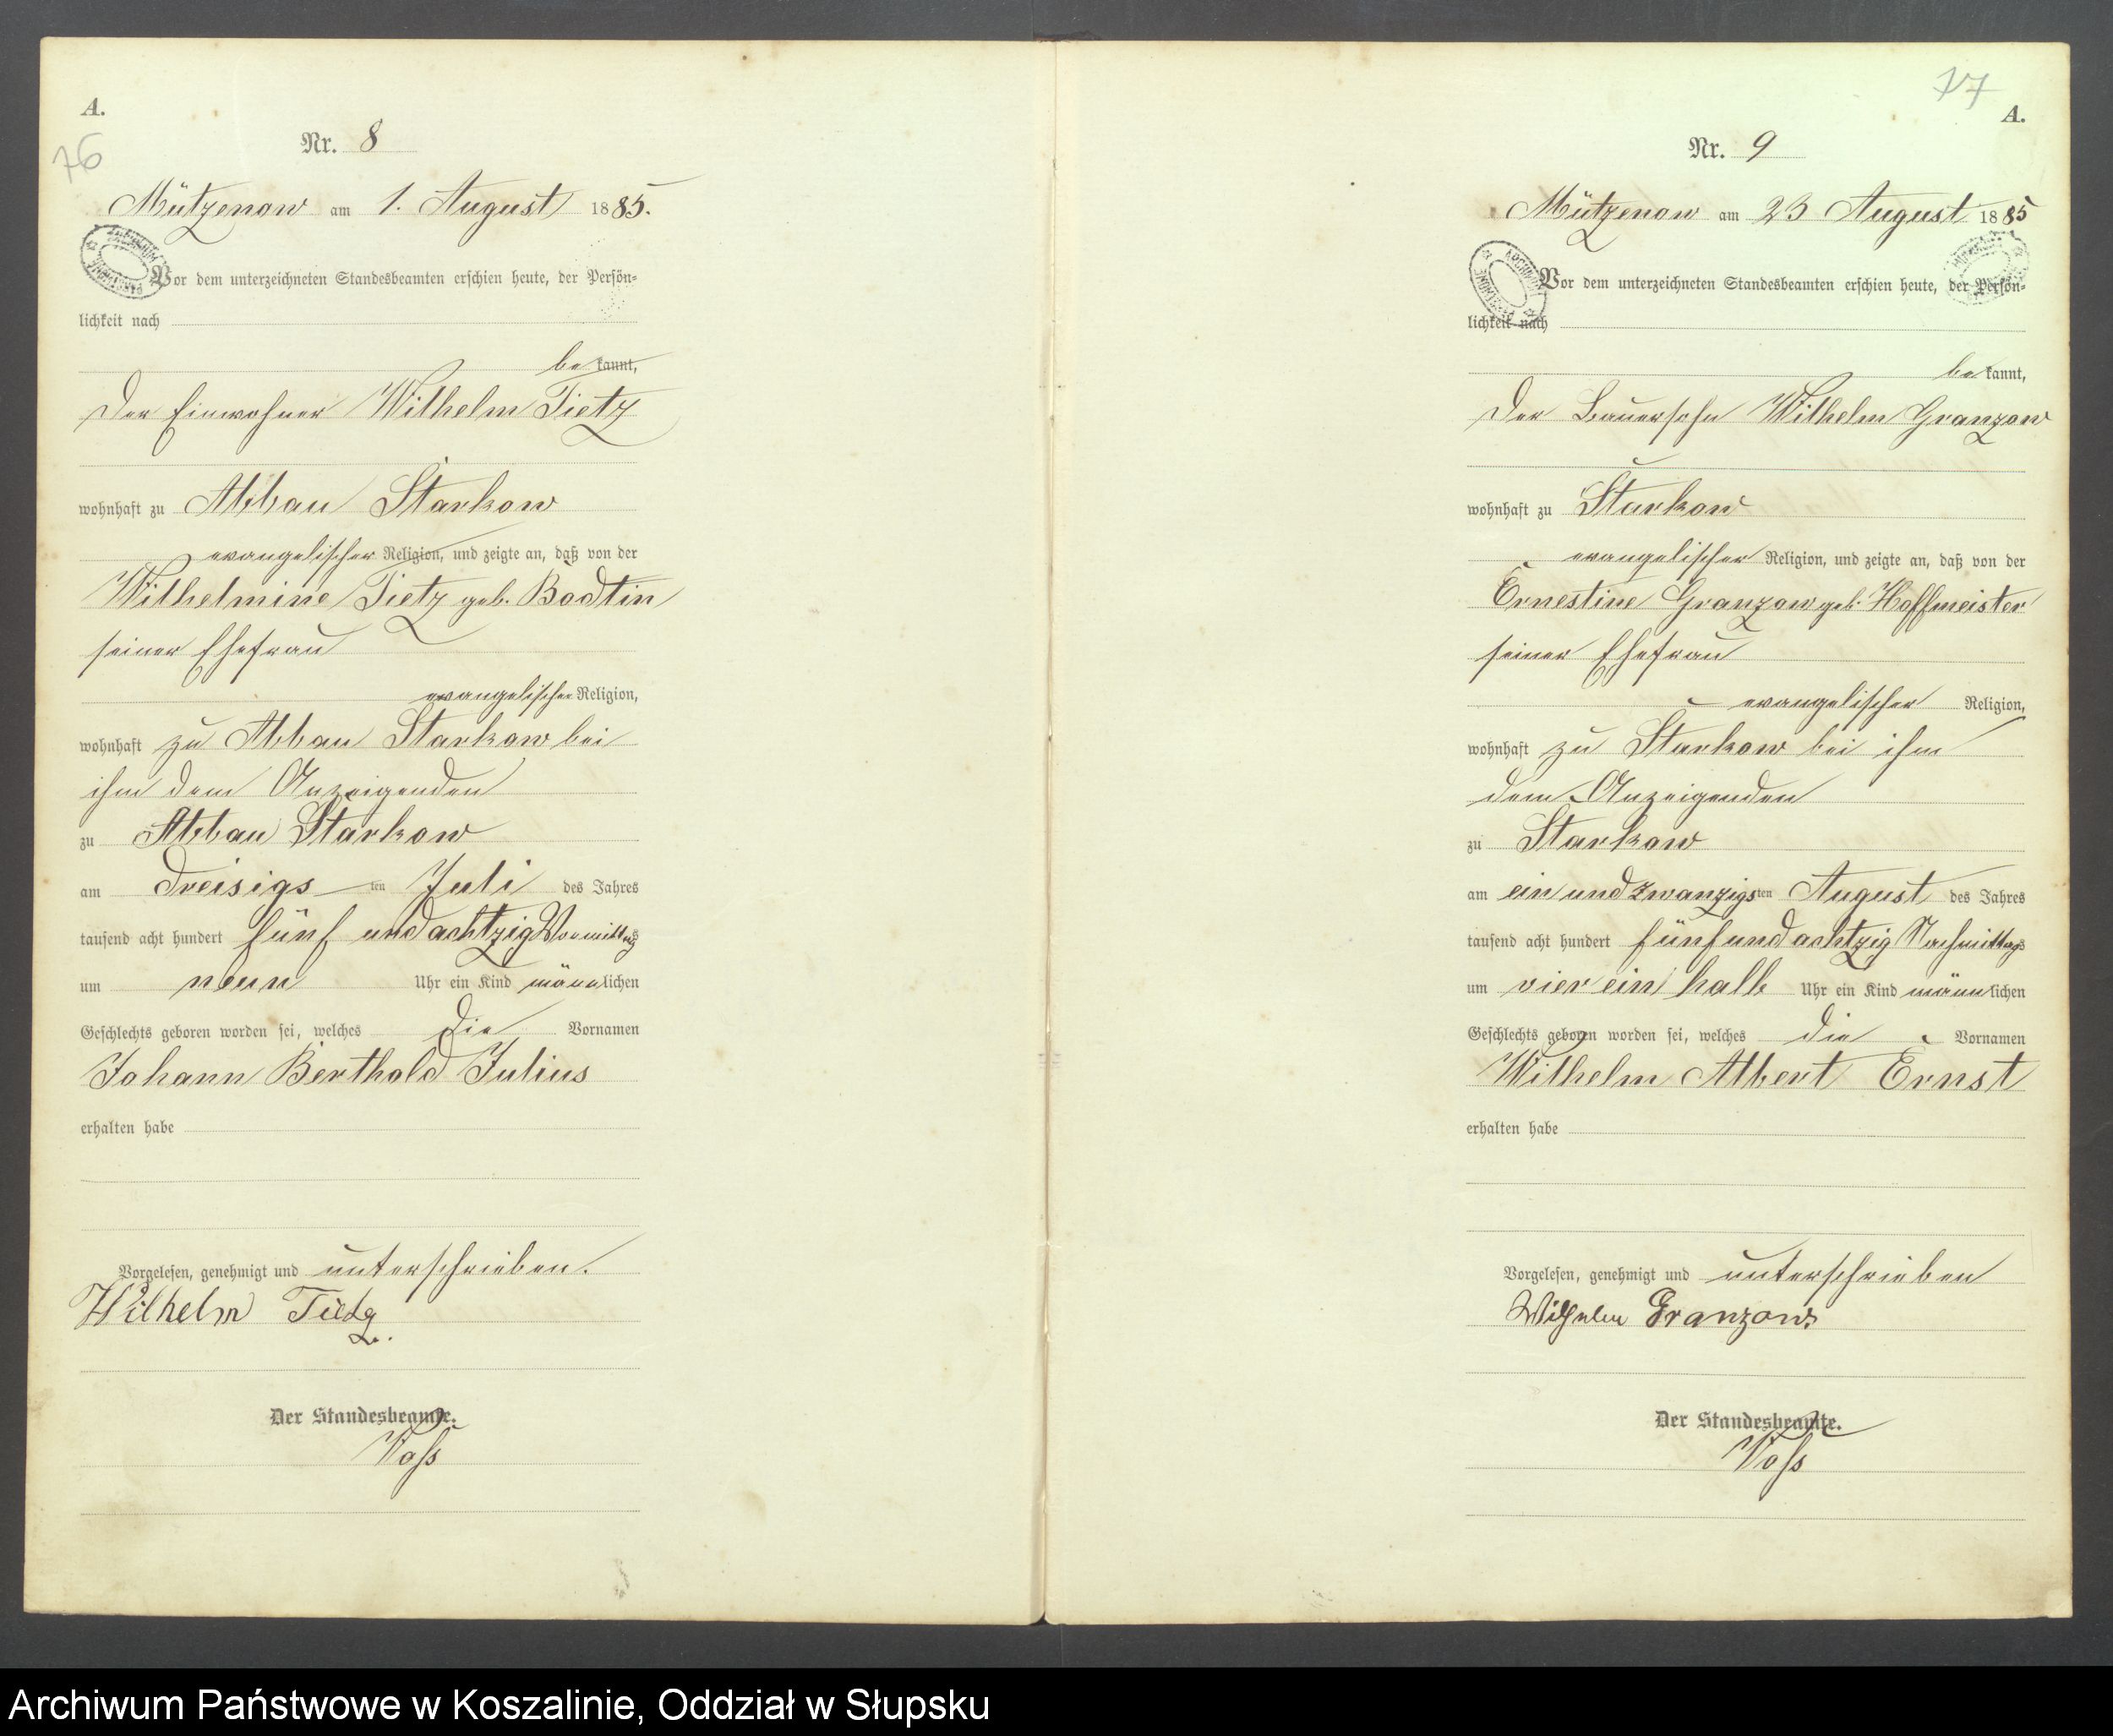 A.
76
Nr. 8
Mützenow am 1. August 1885.
Vor dem unterzeichneten Standesbeamten erschien heute, der Persön-
lichkeit nach
bekannt,
der Einwohner Wilhelm Tietz
wohnhaft zu Abbau Starkow
evangelischer Religion, und zeigte an, daß von der
Wilhelmine Tietz geb. Bodtin
seiner Ehefrau
evangelischer Religion,
wohnhaft zu Abbau Starkow bei
ihm dem Anzeigenden
zu Abbau Starkow
am dreisigsten Juli des Jahres
tausend acht hundert fünf und achtzig Vormittags
um neun Uhr ein Kind männlichen
Geschlechts geboren worden sei, welches die Vornamen
Johann Berthold Julius
erhalten habe
Vorgelesen, genehmigt und unterschrieben.
Wilhelm Tietz.
Der Standesbeamte.
Voß
77
A.
Nr. 9
Mützenow am 23 August 1885
Vor dem unterzeichneten Standesbeamten erschien heute, der Persön-
lichkeit nach
bekannt,
der Bauersohn Wilhelm Granzow
wohnhaft zu Starkow
evangelischer Religion, und zeigte an, daß von der
Ernestine Granzow geb. Hoffmeister
seiner Ehefrau
evangelischer Religion,
wohnhaft zu Starkow bei ihm
dem Anzeigenden
zu Starkow
am ein und zwanzigsten August des Jahres
tausend acht hundert fünf und achtzig Nachmittags
um vier ein halb Uhr ein Kind männlichen
Geschlechts geboren worden sei, welches die Vornamen
Wilhelm Albert Ernst
erhalten habe
Vorgelesen, genehmigt und unterschrieben
Wilhelm Granzow.
Der Standesbeamte.
Voß
Archiwum Państwowe w Koszalinie, Oddział w Słupsku